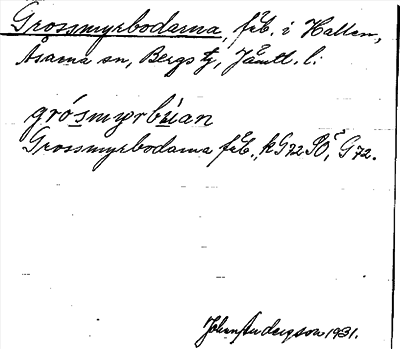 Grossmyrbodarna, fäb. i Hallen,
Åsarna sn, Bergs tg, Jämtl. l:
grósmyrbúan
Grossmyrbodarna fäb., kG72SO, G72.
Johan Anderson 1931.